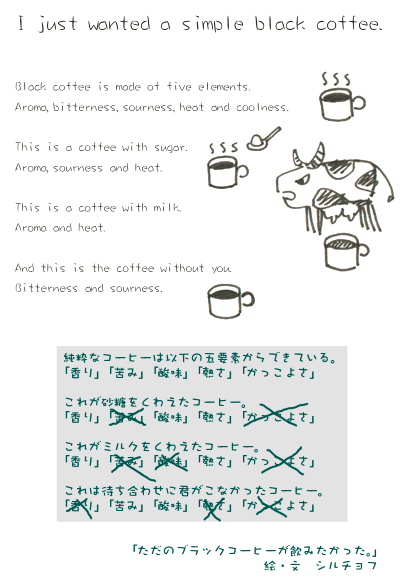 I just wanted a simple black coffee.
Black coffee is made of five elements.
Aroma, bitterness, sourness, heat and coolness.
This is a coffee with sugar.
Aroma, sourness and heat.
This is a coffee with milk.
Aroma and heat.
And this is the coffee without you.
Bitterness and sourness.
純粋なコーヒーは以下の五要素からできている。
「香り」「苦み」「酸味」「熱さ」「かっこよさ」
これが砂糖をくわえたコーヒー。
「香り」「苦み」「酸味」「熱さ」「かっこよさ」
これがミルクをくわえたコーヒー。
「香り」「苦み」「酸味」「熱さ」「かっこよさ」
これは待ち合わせに君がこなかったコーヒー。
「香り」「苦み」「酸味」「熱さ」「かっこよさ」
「ただのブラックコーヒーが飲みたかった。」
絵・文 シルチョフ